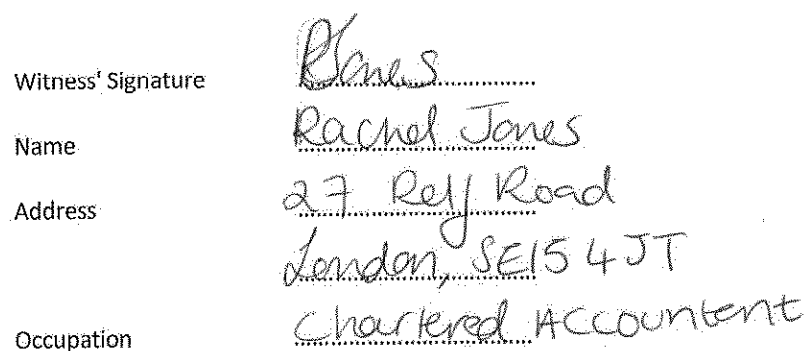 Witness' Signature RJones
Name Rachel Jones
Address 27 Relf Road
London, SE15 4JT
Occupation Chartered Accountent